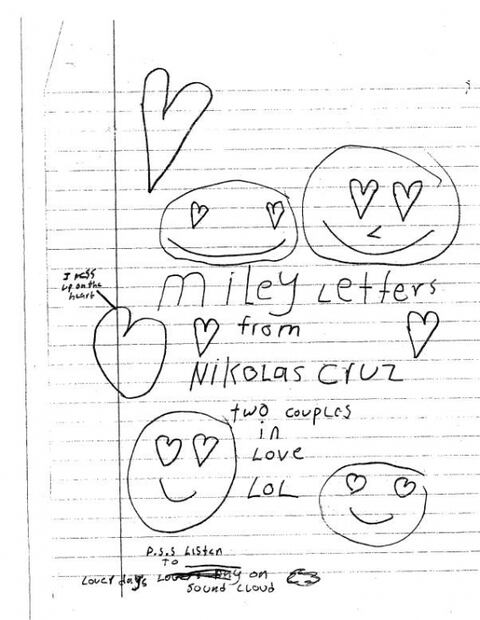 I mess
up on the
heart
Miley Letters
from
NIKOLAS CRUZ
two couples
in
Love
LOL
P.S.S Listen
TO
Lover days on
Sound Cloud